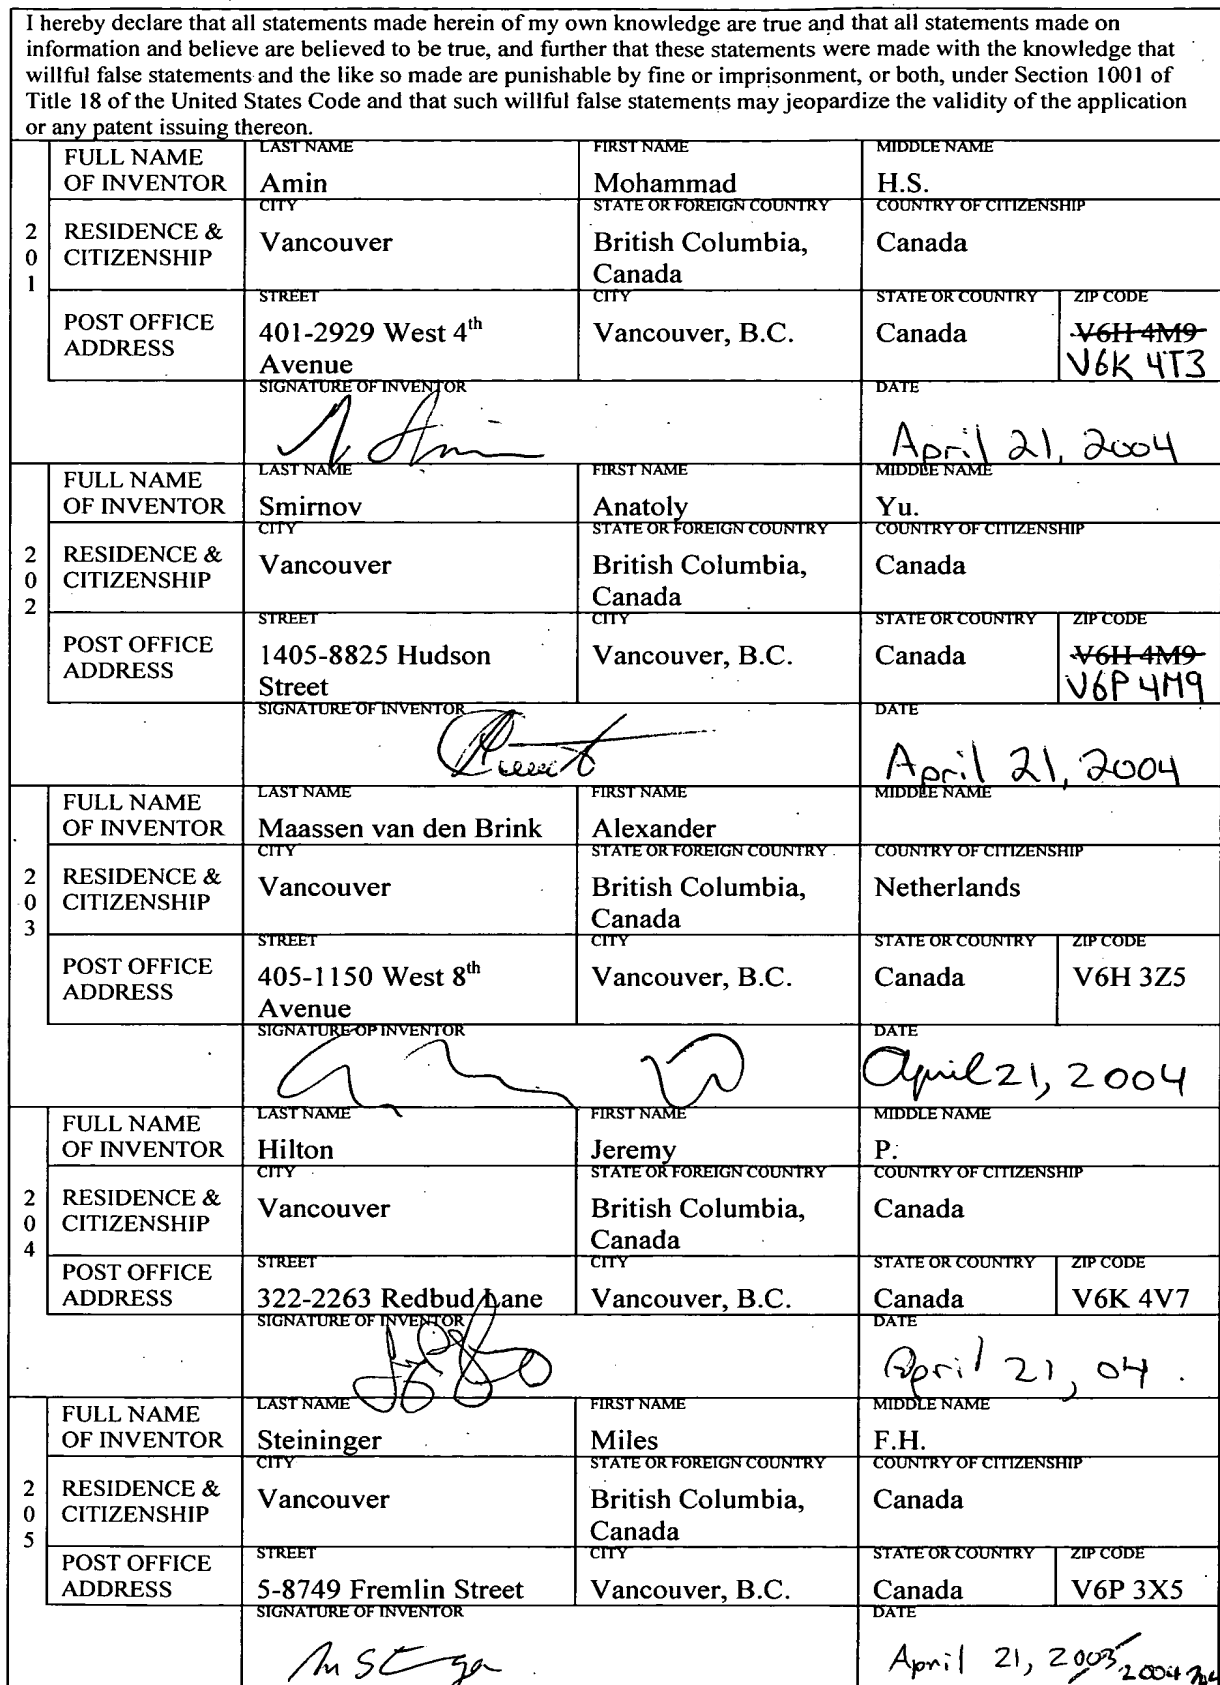 I hereby declare that all statements made herein of my own knowledge are true and that all statements made on
information and believe are believed to be true, and further that these statements were made with the knowledge that
willful false statements and the like so made are punishable by fine or imprisonment, or both, under Section 1001 of
Title 18 of the United States Code and that such willful false statements may jeopardize the validity of the application
or any patent issuing thereon.
201
FULL NAME OF INVENTOR
LAST NAME
Amin
FIRST NAME
Mohammad
MIDDLE NAME
H.S.
RESIDENCE & CITIZENSHIP
CITY
Vancouver
STATE OR FOREIGN COUNTRY
British Columbia,
Canada
COUNTRY OF CITIZENSHIP
Canada
POST OFFICE ADDRESS
STREET
401-2929 West 4th
Avenue
CITY
Vancouver, B.C.
STATE OR COUNTRY
Canada
ZIP CODE
V6H 4M9
V6K 4T3
SIGNATURE OF INVENTOR
DATE
April 21, 2004
202
FULL NAME OF INVENTOR
LAST NAME
Smirnov
FIRST NAME
Anatoly
MIDDLE NAME
Yu.
RESIDENCE & CITIZENSHIP
CITY
Vancouver
STATE OR FOREIGN COUNTRY
British Columbia,
Canada
COUNTRY OF CITIZENSHIP
Canada
POST OFFICE ADDRESS
STREET
1405-8825 Hudson
Street
CITY
Vancouver, B.C.
STATE OR COUNTRY
Canada
ZIP CODE
V6H 4M9
V6P 4M9
SIGNATURE OF INVENTOR
DATE
April 21, 2004
203
FULL NAME OF INVENTOR
LAST NAME
Maassen van den Brink
FIRST NAME
Alexander
MIDDLE NAME
RESIDENCE & CITIZENSHIP
CITY
Vancouver
STATE OR FOREIGN COUNTRY
British Columbia,
Canada
COUNTRY OF CITIZENSHIP
Netherlands
POST OFFICE ADDRESS
STREET
405-1150 West 8th
Avenue
CITY
Vancouver, B.C.
STATE OR COUNTRY
Canada
ZIP CODE
V6H 3Z5
SIGNATURE OF INVENTOR
DATE
April 21, 2004
204
FULL NAME OF INVENTOR
LAST NAME
Hilton
FIRST NAME
Jeremy
MIDDLE NAME
P.
RESIDENCE & CITIZENSHIP
CITY
Vancouver
STATE OR FOREIGN COUNTRY
British Columbia,
Canada
COUNTRY OF CITIZENSHIP
Canada
POST OFFICE ADDRESS
STREET
322-2263 Redbud Lane
CITY
Vancouver, B.C.
STATE OR COUNTRY
Canada
ZIP CODE
V6K 4V7
SIGNATURE OF INVENTOR
DATE
April 21, 04.
205
FULL NAME OF INVENTOR
LAST NAME
Steininger
FIRST NAME
Miles
MIDDLE NAME
F.H.
RESIDENCE & CITIZENSHIP
CITY
Vancouver
STATE OR FOREIGN COUNTRY
British Columbia,
Canada
COUNTRY OF CITIZENSHIP
Canada
POST OFFICE ADDRESS
STREET
5-8749 Fremlin Street
CITY
Vancouver, B.C.
STATE OR COUNTRY
Canada
ZIP CODE
V6P 3X5
SIGNATURE OF INVENTOR
DATE
April 21, 2003 2004